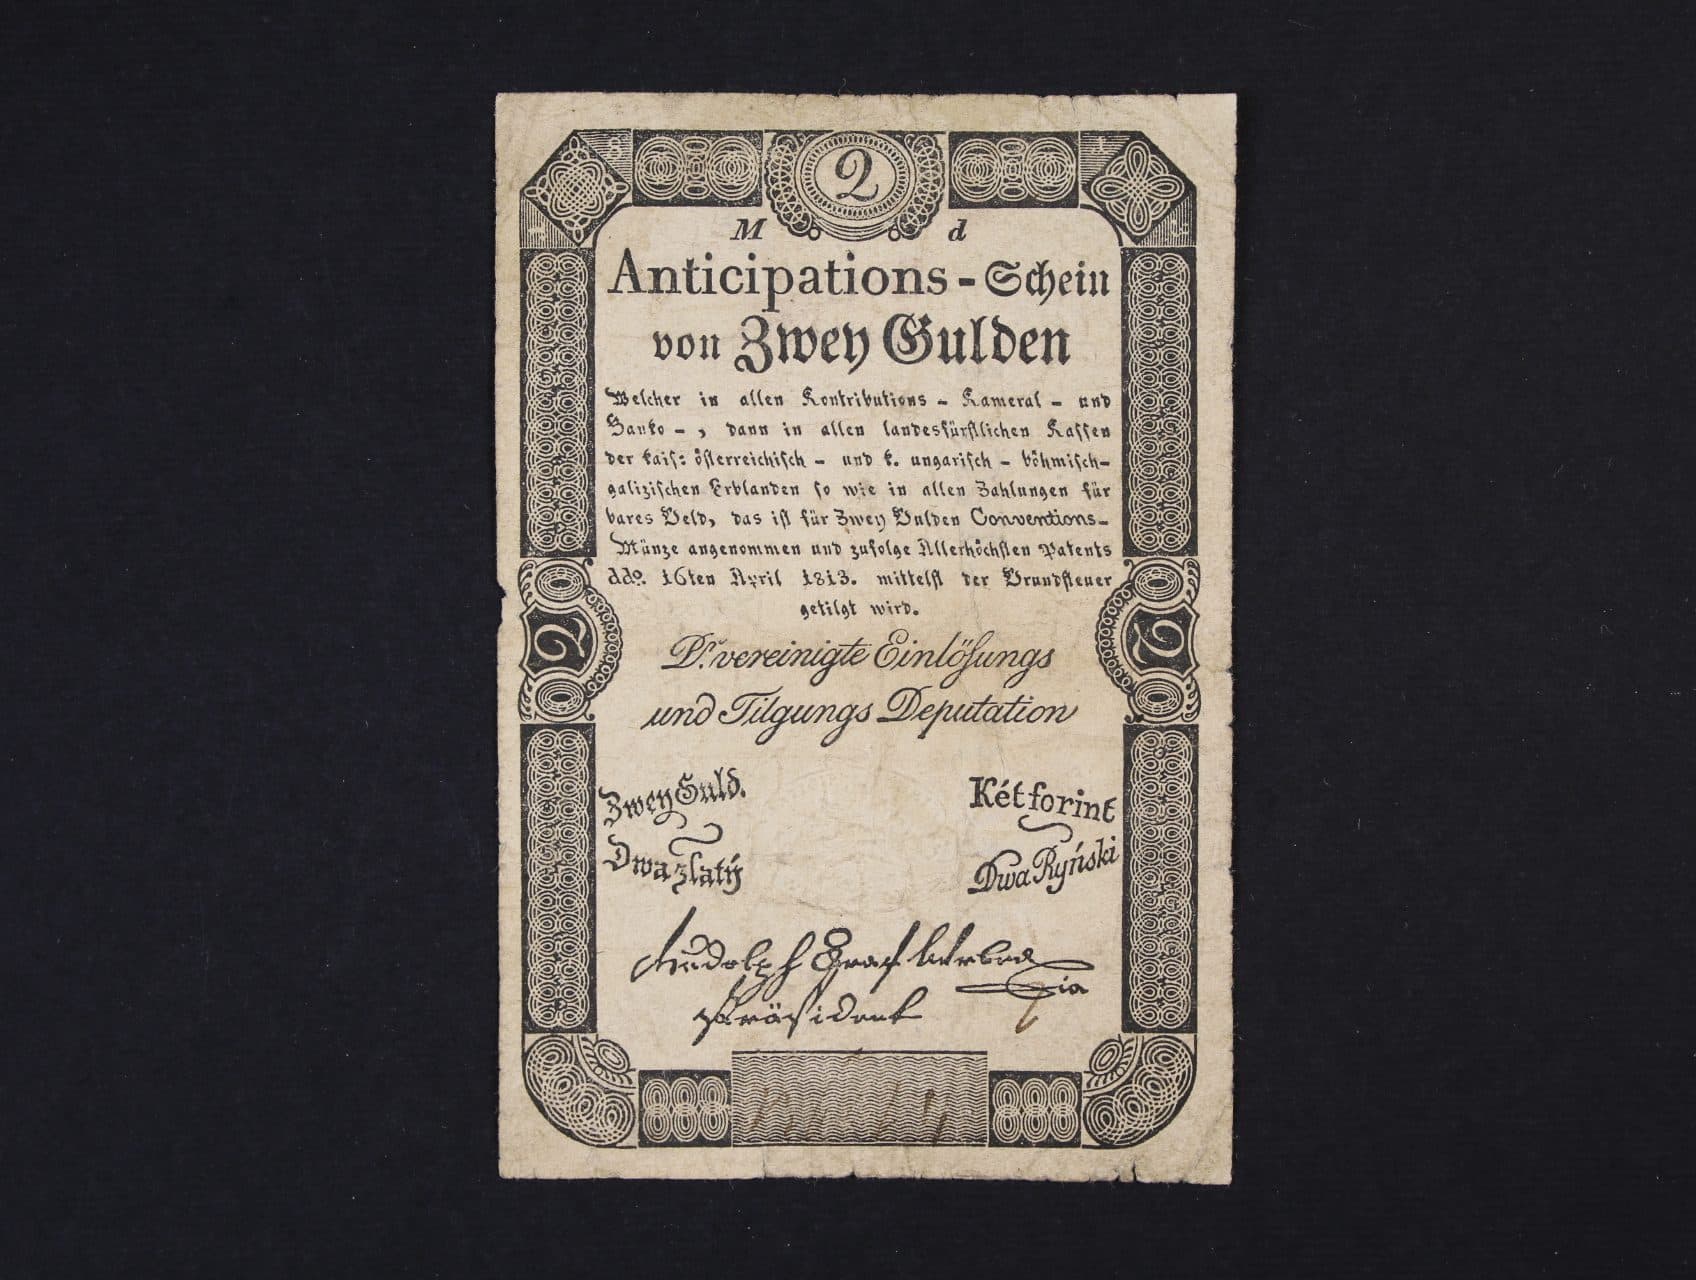 2
M d
Anticipations-Schein
von Zwey Gulden
Welcher in allen Kontributions - Kameral - und
Banko -, dann in allen landesfürstlichen Kassen
der kais: österreichisch - und k. ungarisch - böhmisch-
galizischen Erblanden so wie in allen Zahlungen für
bares Geld, das ist für Zwey Gulden Conventions-
Münze angenommen und zufolge Allerhöchsten Patents
ddo. 16ten April 1813. mittelst der Grundsteuer
getilgt wird.
2 2
Dr. vereinigte Einlösungs
und Tilgungs Deputation
Zwey Guld. Két forint
Dwa zlatÿ Dwa Ryński
Rudolph Graf Wrbna
Präsident